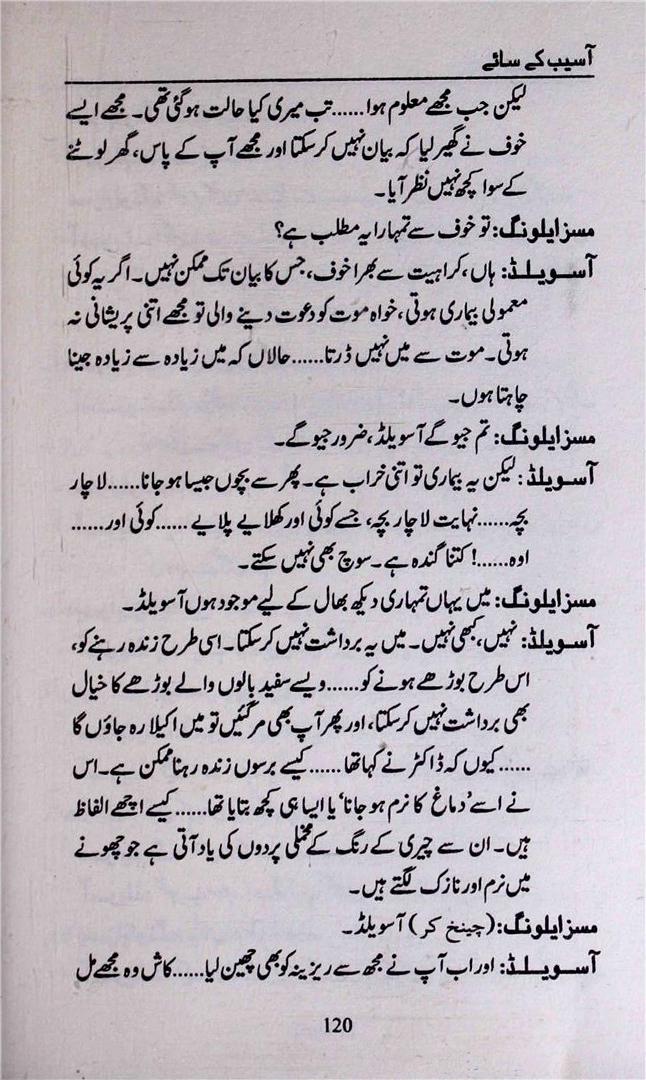 آسیب کے سائے
لیکن جب مجھے معلوم ہوا......تب میری کیا حالت ہوگئی تھی۔ مجھے ایسے
خوف نے گھیر لیا کہ بیان نہیں کرسکتا اور مجھے آپ کے پاس، گھر لوٹنے
کے سوا کچھ نہیں نظر آیا۔
مسز ایلونگ: تو خوف سے تمہارا یہ مطلب ہے؟
آسویلڈ: ہاں، کراہیت سے بھرا خوف، جس کا بیان تک ممکن نہیں۔ اگر یہ کوئی
معمولی بیماری ہوتی، خواہ موت کو دعوت دینے والی تو مجھے اتنی پریشانی نہ
ہوتی۔ موت سے میں نہیں ڈرتا......حالاں کہ میں زیادہ سے زیادہ جینا
چاہتا ہوں۔
مسز ایلونگ: تم جیو گے آسویلڈ، ضرور جیو گے۔
آسویلڈ: لیکن یہ بیماری تو اتنی خراب ہے۔ پھر سے بچوں جیسا ہو جانا......لاچار
بچہ......نہایت لاچار بچہ، جسے کوئی اور کھلایے پلایے......کوئی اور......
اوہ......! کتنا گندہ ہے۔ سوچ بھی نہیں سکتے۔
مسز ایلونگ: میں یہاں تمہاری دیکھ بھال کے لیے موجود ہوں آسویلڈ۔
آسویلڈ: نہیں، کبھی نہیں۔ میں یہ برداشت نہیں کرسکتا۔ اسی طرح زندہ رہنے کو،
اس طرح بوڑھے ہونے کو......ویسے سفید بالوں والے بوڑھے کا خیال
بھی برداشت نہیں کرسکتا، اور پھر آپ بھی مرگئیں تو میں اکیلا رہ جاؤں گا
......کیوں کہ ڈاکٹر نے کہا تھا......کیسے برسوں زندہ رہنا ممکن ہے۔ اس
نے اسے 'دماغ کا نرم ہو جانا' یا ایسا ہی کچھ بتایا تھا......کیسے اچھے الفاظ
ہیں۔ ان سے چیری کے رنگ کے مخملی پردوں کی یاد آتی ہے جو چھونے
میں نرم اور نازک لگتے ہیں۔
مسز ایلونگ: (چینخ کر) آسویلڈ۔
آسویلڈ: اور اب آپ نے مجھ سے ریزینہ کو بھی چھین لیا......کاش وہ مجھے مل
120